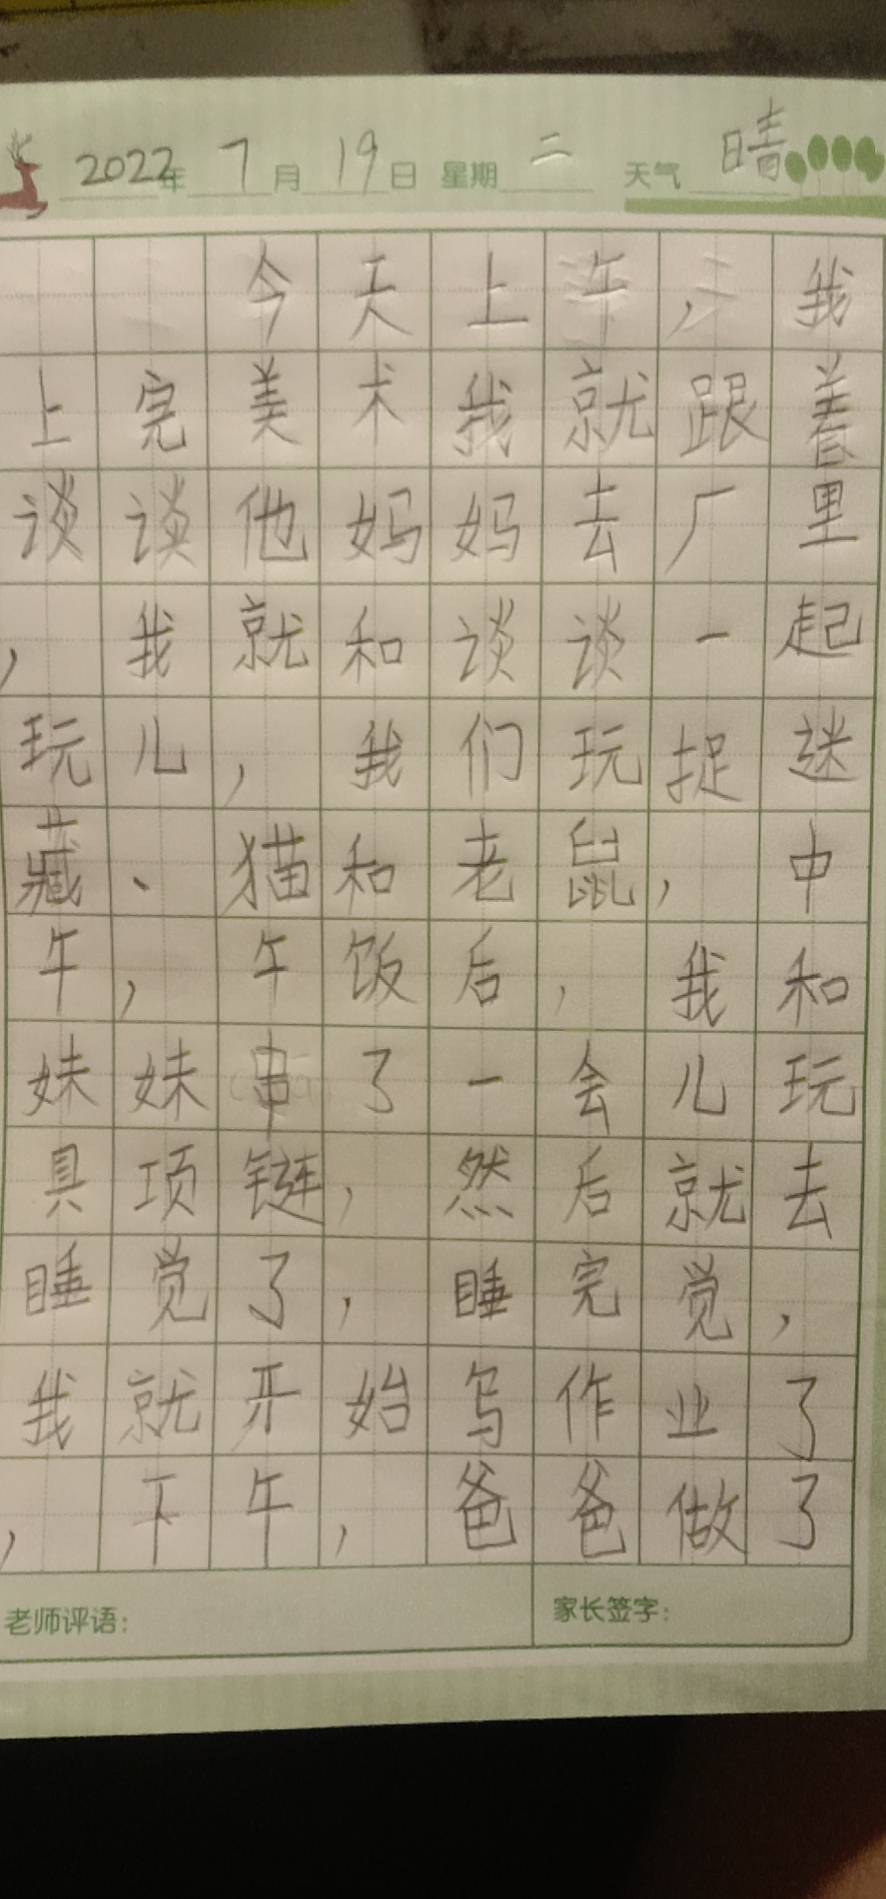 2022年7月19日 星期二 天气晴
今天上午,我
上完美术我就跟着
谈谈他妈妈去厂里
,我就和谈谈一起
玩儿,我们玩捉迷
藏、猫和老鼠,中
午,午饭后,我和
妹妹串了一会儿玩
具项链,然后就去
睡觉了,睡完觉,
我就开始写作业了
,下午,爸爸做了
老师评语: 家长签字: